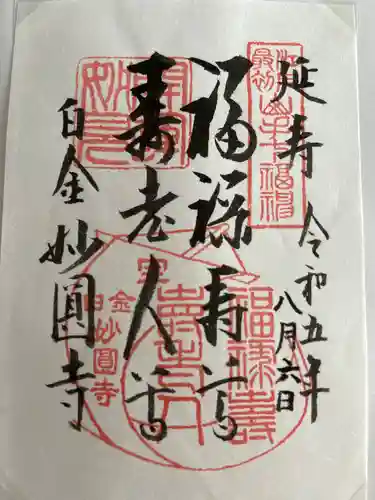 延寿 令和五年
八月六日
福禄寿尊
寿老人尊
白金 妙圓寺
山手七福神
福禄寿
寿老人
白金
妙圓寺